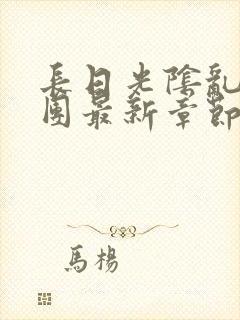 長日光陰亂
團最新章節
馬楊